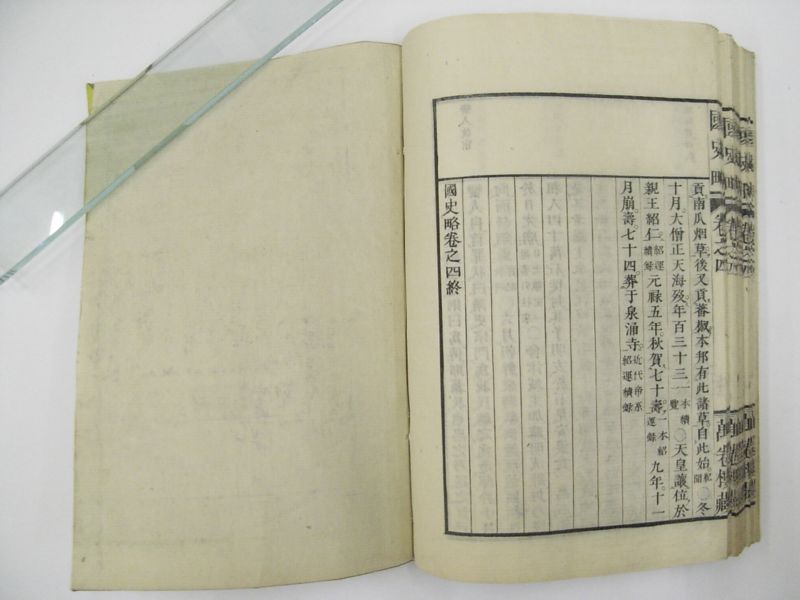 國史略 卷之四 萬卷樓藏
貢南瓜烟草後又貢蕃椒本邦有此諸草自此始紀聞○冬
十月大僧正天海歿年百三十三一本續覽○天皇讓位於
親王紹仁紹運續錄元祿五年秋賀七十壽一本紹運錄九年十一
月崩壽七十四葬于泉涌寺近代帝系紹運續錄
國史略卷之四終